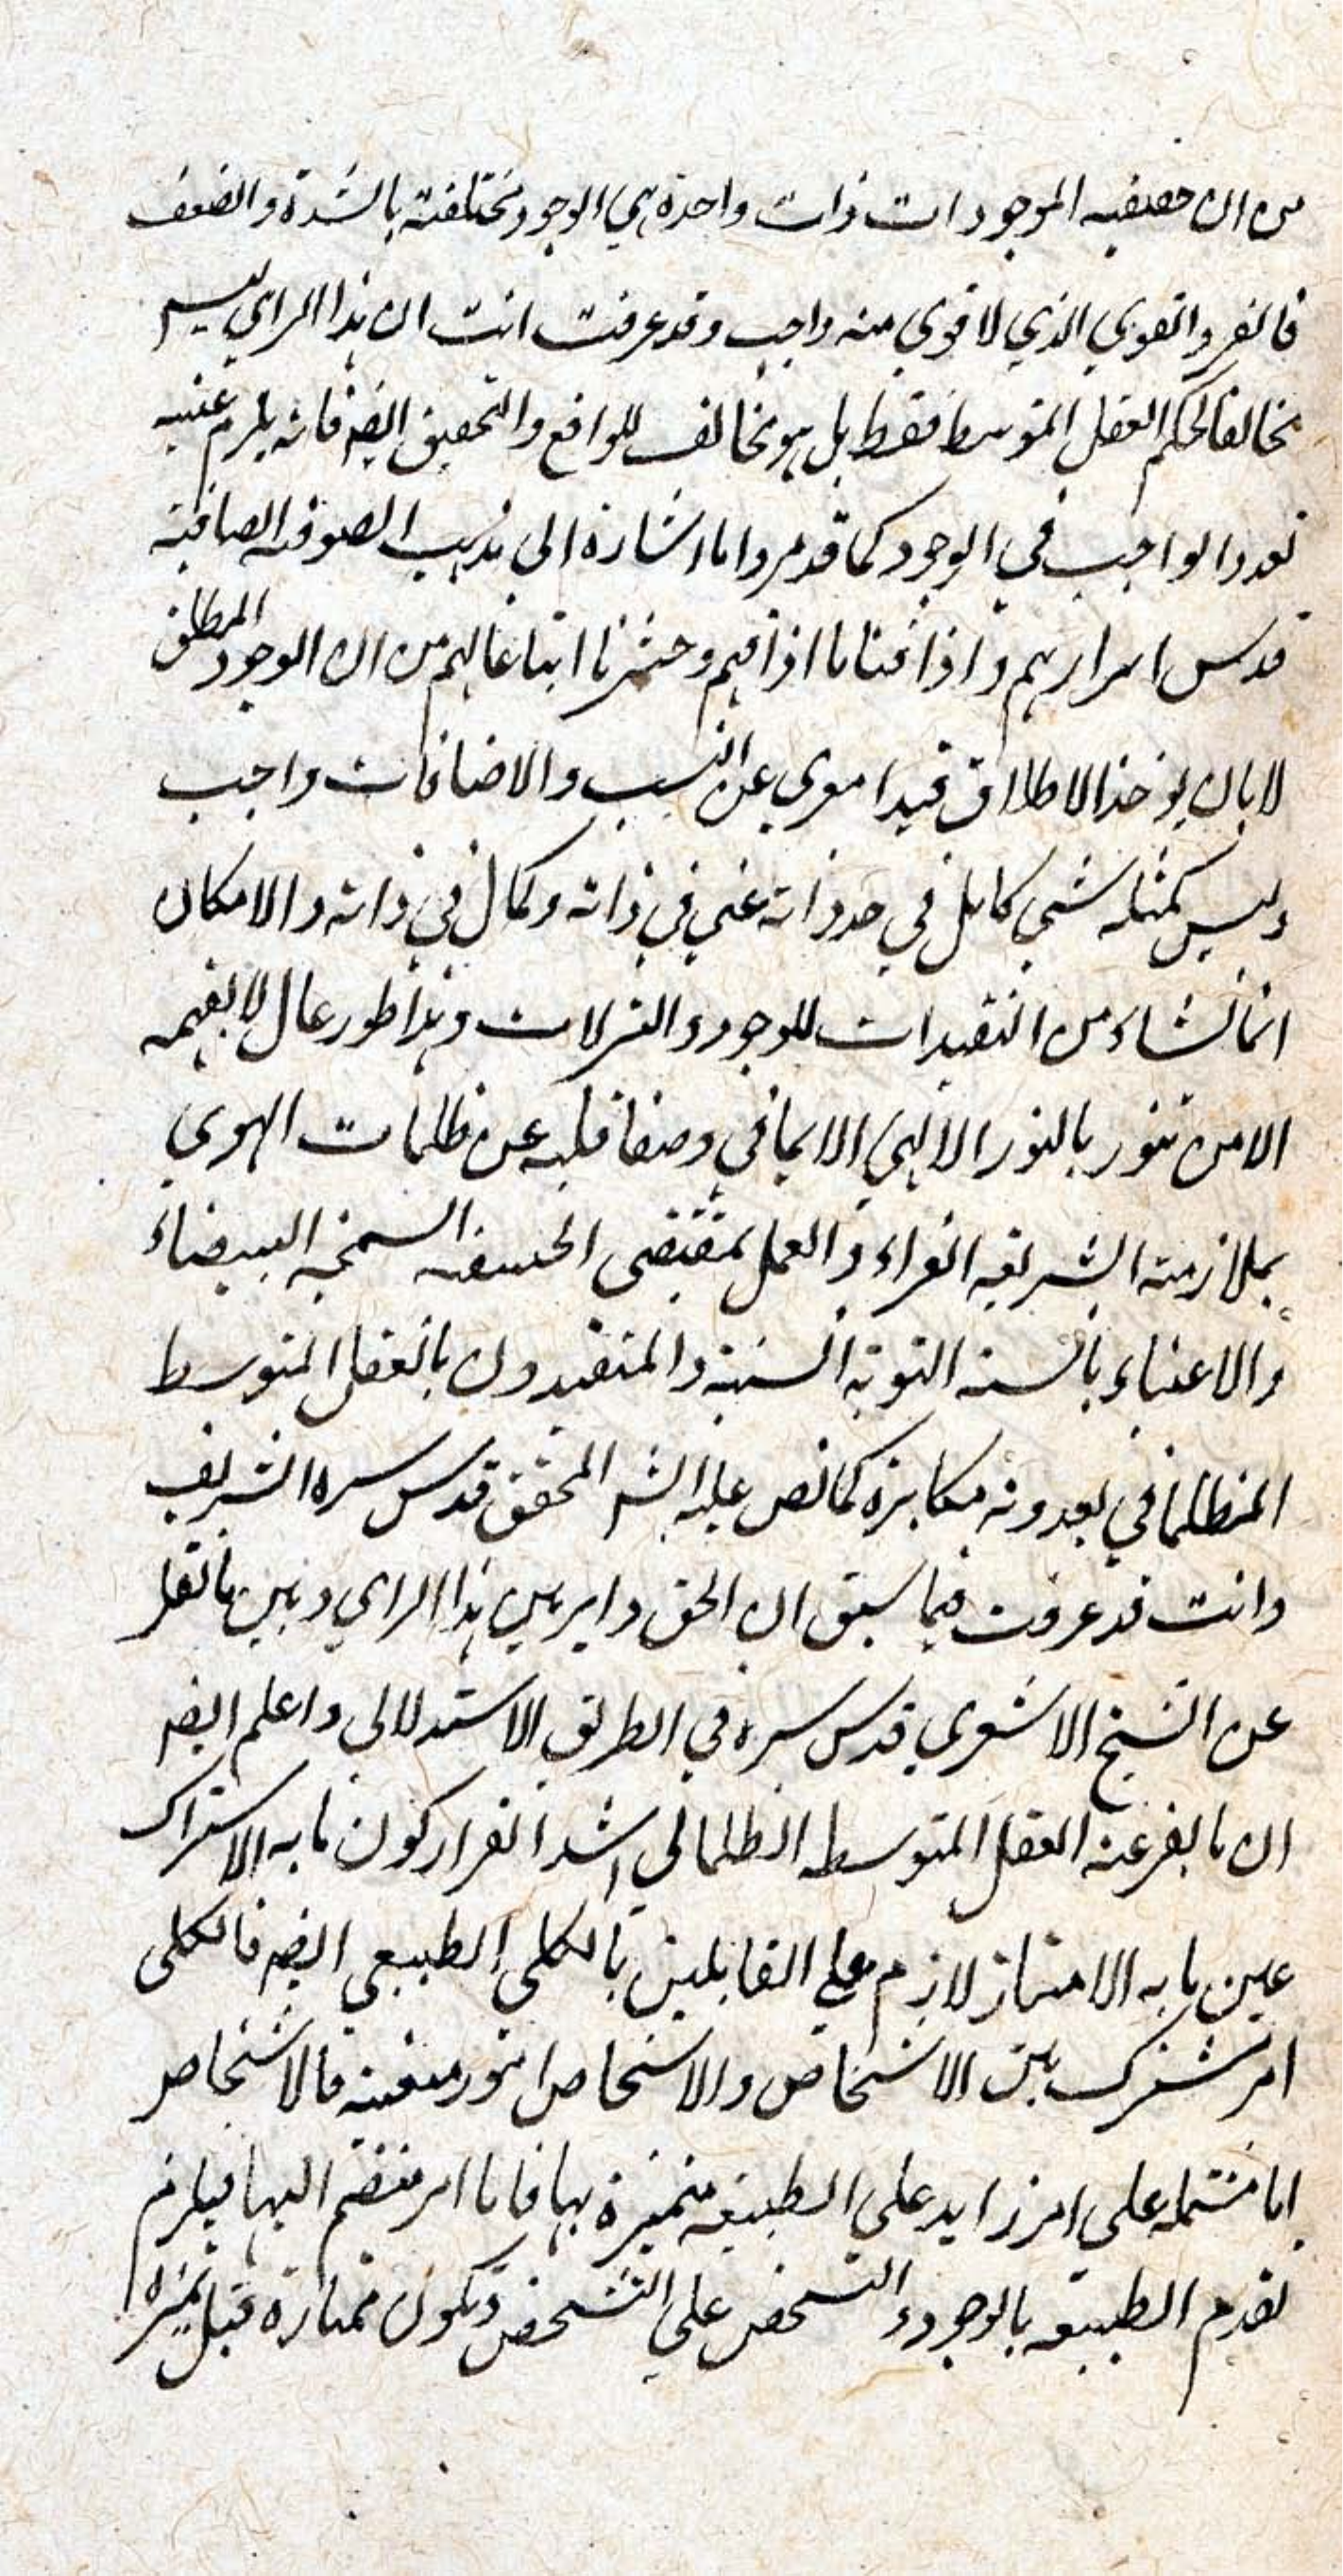 من ان حقيقيه الموجودات ذات واحدة هي الوجود مختلفة بالشدة والضعف
فالفرد القوي الذي لا قوي منه واجب وقد عرفت انت ان هذا الراي ليس
مخالفا لحكم العقل المتوسط فقط بل هو مخالف للواقع والتحقيق ايضه فانه يلزم عنيه
تعدد الواجب في الوجود كما قد مر واما اشارة الى مذهب الصوفيه الصافية
قدس اسرارهم واذاقنا ما اذاقهم وحشرنا اتباعا لهم من ان الوجود المطلق
لا بان يوخذ الاطلاق قيدا معري عن النسب والاضافات واجب
وليس كمثله شي كامل في حد ذاته غني في ذاته وكمال في ذاته والامكان
انما نشاء من التقيدات للوجود والتنزلات وهذا طور عال لا يفهمه
الا من تنور بالنور الالهي الايماني وصفا قلبه عن ظلمات الهوي
بملازمة الشريعه الغراء والعمل بمقتضى الحنيفه السمحه البيضاء
والاعتناء بالسنه النبوية السنية والمتقيدون بالعقل المتوسط
الظلماني يعدونه مكابرة كما نص عليه الشر المحقق قدس سره الشريف
وانت قد عرفت فيما سبق ان الحق داير بين هذا الراي وبين ما نقل
عن الشيخ الاشعري قدس سره في الطريق الاستدلالي واعلم ايضه
ان ما يفر عنه العقل المتوسطه الظلماني اشد الفرار كون ما به الاشتراك
عين ما به الامتياز لازم علي القايلين بالكلي الطبيعي ايضه فالكلي
امر مشترك بين الاشخاص والاشخاص امور معينه فالاشخاص
اما مشتمله على امر زايد علي الطبيعه متميزة بها فاما امر منضم اليها فيلزم
تقدم الطبيعه بالوجود والتشخص علي التشخص وتكون ممتازة قبل تميزه